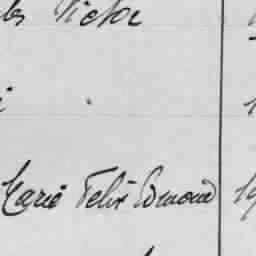 les Victor
i
Marie Felix Edmond 19